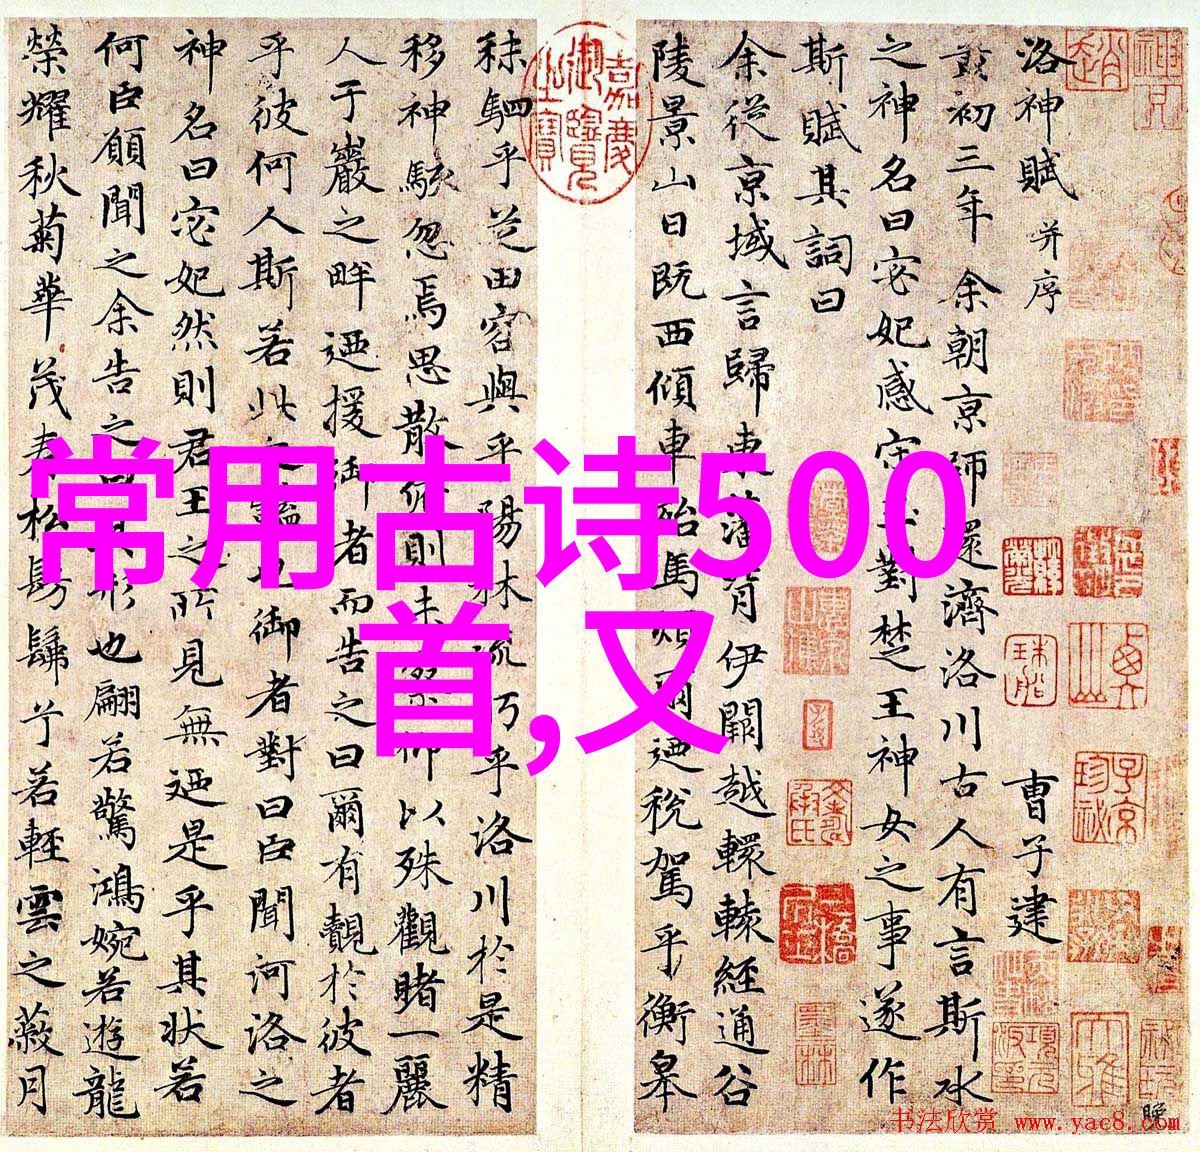 洛神賦 并序
曹子建
黃初三年余朝京師還濟洛川古人有言斯水
之神名曰宓妃感宋玉對楚王神女之事遂作
斯賦其詞曰
余從京域言歸東藩背伊闕越轘轅經通谷
陵景山日既西傾車殆馬煩爾迺稅駕乎衡皋
秣駟乎芝田容與乎陽林流眄乎洛川於是精
移神駭忽焉思散俯則未察仰以殊觀睹一麗
人于巖之畔迺援御者而告之曰爾有覿於彼者
乎彼何人斯若此之豔也御者對曰臣聞河洛之
神名曰宓妃然則君王之所見無迺是乎其状若
何臣願聞之余告之曰其形也翩若驚鴻婉若遊龍
榮耀秋菊華茂春松髣髴兮若輕雲之蔽月
嘉慶御覽之寶
常用古诗500
首,又
书法欣赏 www.yac8.com